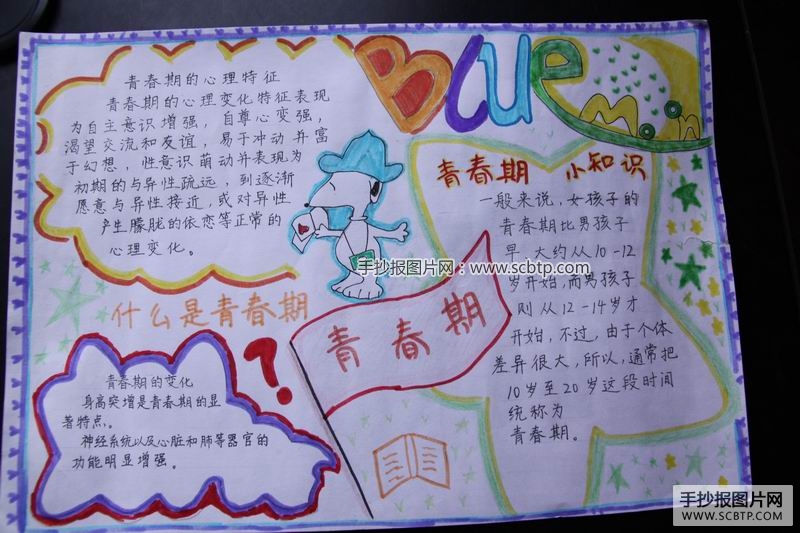 Blue
Moon
青春期的心理特征
青春期的心理变化特征表现
为自主意识增强，自尊心变强，
渴望交流和友谊，易于冲动并富
于幻想，性意识萌动并表现为
初期的与异性疏远，到逐渐
愿意与异性接近，或对异性
产生朦胧的依恋等正常的
心理变化。
青春期 小知识
一般来说，女孩子的
青春期比男孩子
早 大约从10-12
岁开始，而男孩子
则从12-14岁才
开始，不过，由于个体
差异很大，所以，通常把
10岁至20岁这段时间
统称为
青春期。
手抄报图片网：www.scbtp.com
什么是青春期
?
青春期
青春期的变化
身高突增是青春期的显
著特点。
神经系统以及心脏和肺等器官的
功能明显增强。
手抄报图片网
WWW.SCBTP.COM